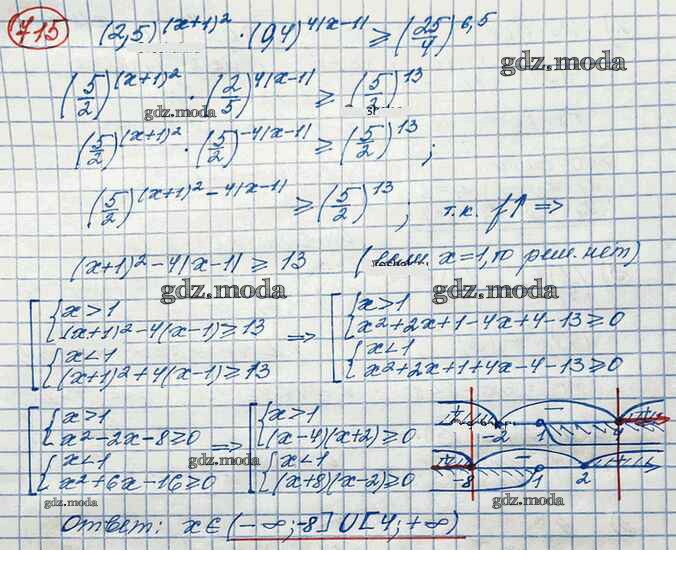 715 (2,5)^(x+1)² · (0,4)^4|x-1| ≥ (25/4)^6,5
gdz.moda
(5/2)^(x+1)² · (2/5)^4|x-1| ≥ (5/2)^13
gdz.moda
(5/2)^(x+1)² · (5/2)^-4|x-1| ≥ (5/2)^13 ;
(5/2)^(x+1)² - 4|x-1| ≥ (5/2)^13 ; т.к. f↑ ⇒
(x+1)² - 4|x-1| ≥ 13 ( x=1, то реш. нет)
gdz.moda gdz.moda
[ { x>1 ⇒ [ { x>1
(x+1)² - 4(x-1) ≥ 13 x²+2x+1-4x+4-13≥0
{ x<1 { x<1
(x+1)² + 4(x-1) ≥ 13 x²+2x+1+4x-4-13≥0
[ { x>1 ⇒ [ { x>1 + - +
x²-2x-8≥0 (x-4)(x+2)≥0 -2 1 4
{ x<1 { x<1 + - +
gdz.moda
x²+6x-16≥0 (x+8)(x-2)≥0 -8 1 2
gdz.moda gdz.moda
Ответ: x∈(-∞;-8]∪[4;+∞)